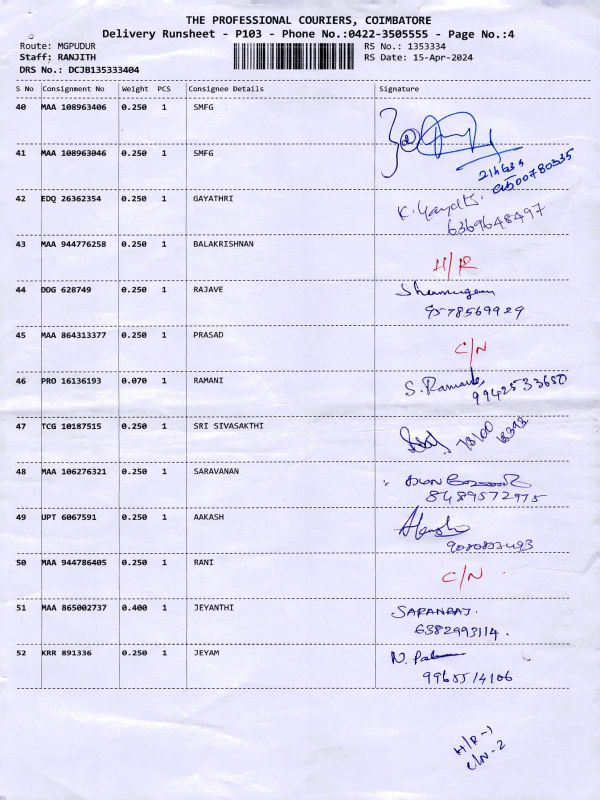 THE PROFESSIONAL COURIERS, COIMBATORE
Delivery Runsheet - P103 - Phone No.:0422-3505555 - Page No.:4
Route: MGPUDUR RS No.: 1353334
Staff: RANJITH RS Date: 15-Apr-2024
DRS No.: DCJB135333404
S No Consignment No Weight PCS Consignee Details Signature
40 MAA 108963406 0.250 1 SMFG
41 MAA 108963046 0.250 1 SMFG
42 EDQ 26362354 0.250 1 GAYATHRI
6369648497
43 MAA 944776258 0.250 1 BALAKRISHNAN
H/R
44 DDG 628749 0.250 1 RAJAVE
9578569929
45 MAA 864313377 0.250 1 PRASAD
C/N
46 PRO 16136193 0.070 1 RAMANI
S. Ramani
9942533650
47 TCG 10187515 0.250 1 SRI SIVASAKTHI
48 MAA 106276321 0.250 1 SARAVANAN
8489572975
49 UPT 6067591 0.250 1 AAKASH
50 MAA 944786405 0.250 1 RANI
C/N
51 MAA 865002737 0.400 1 JEYANTHI
SARANRAJ.
6382993114.
52 KRR 891336 0.250 1 JEYAM
H/R-1
C/N-2